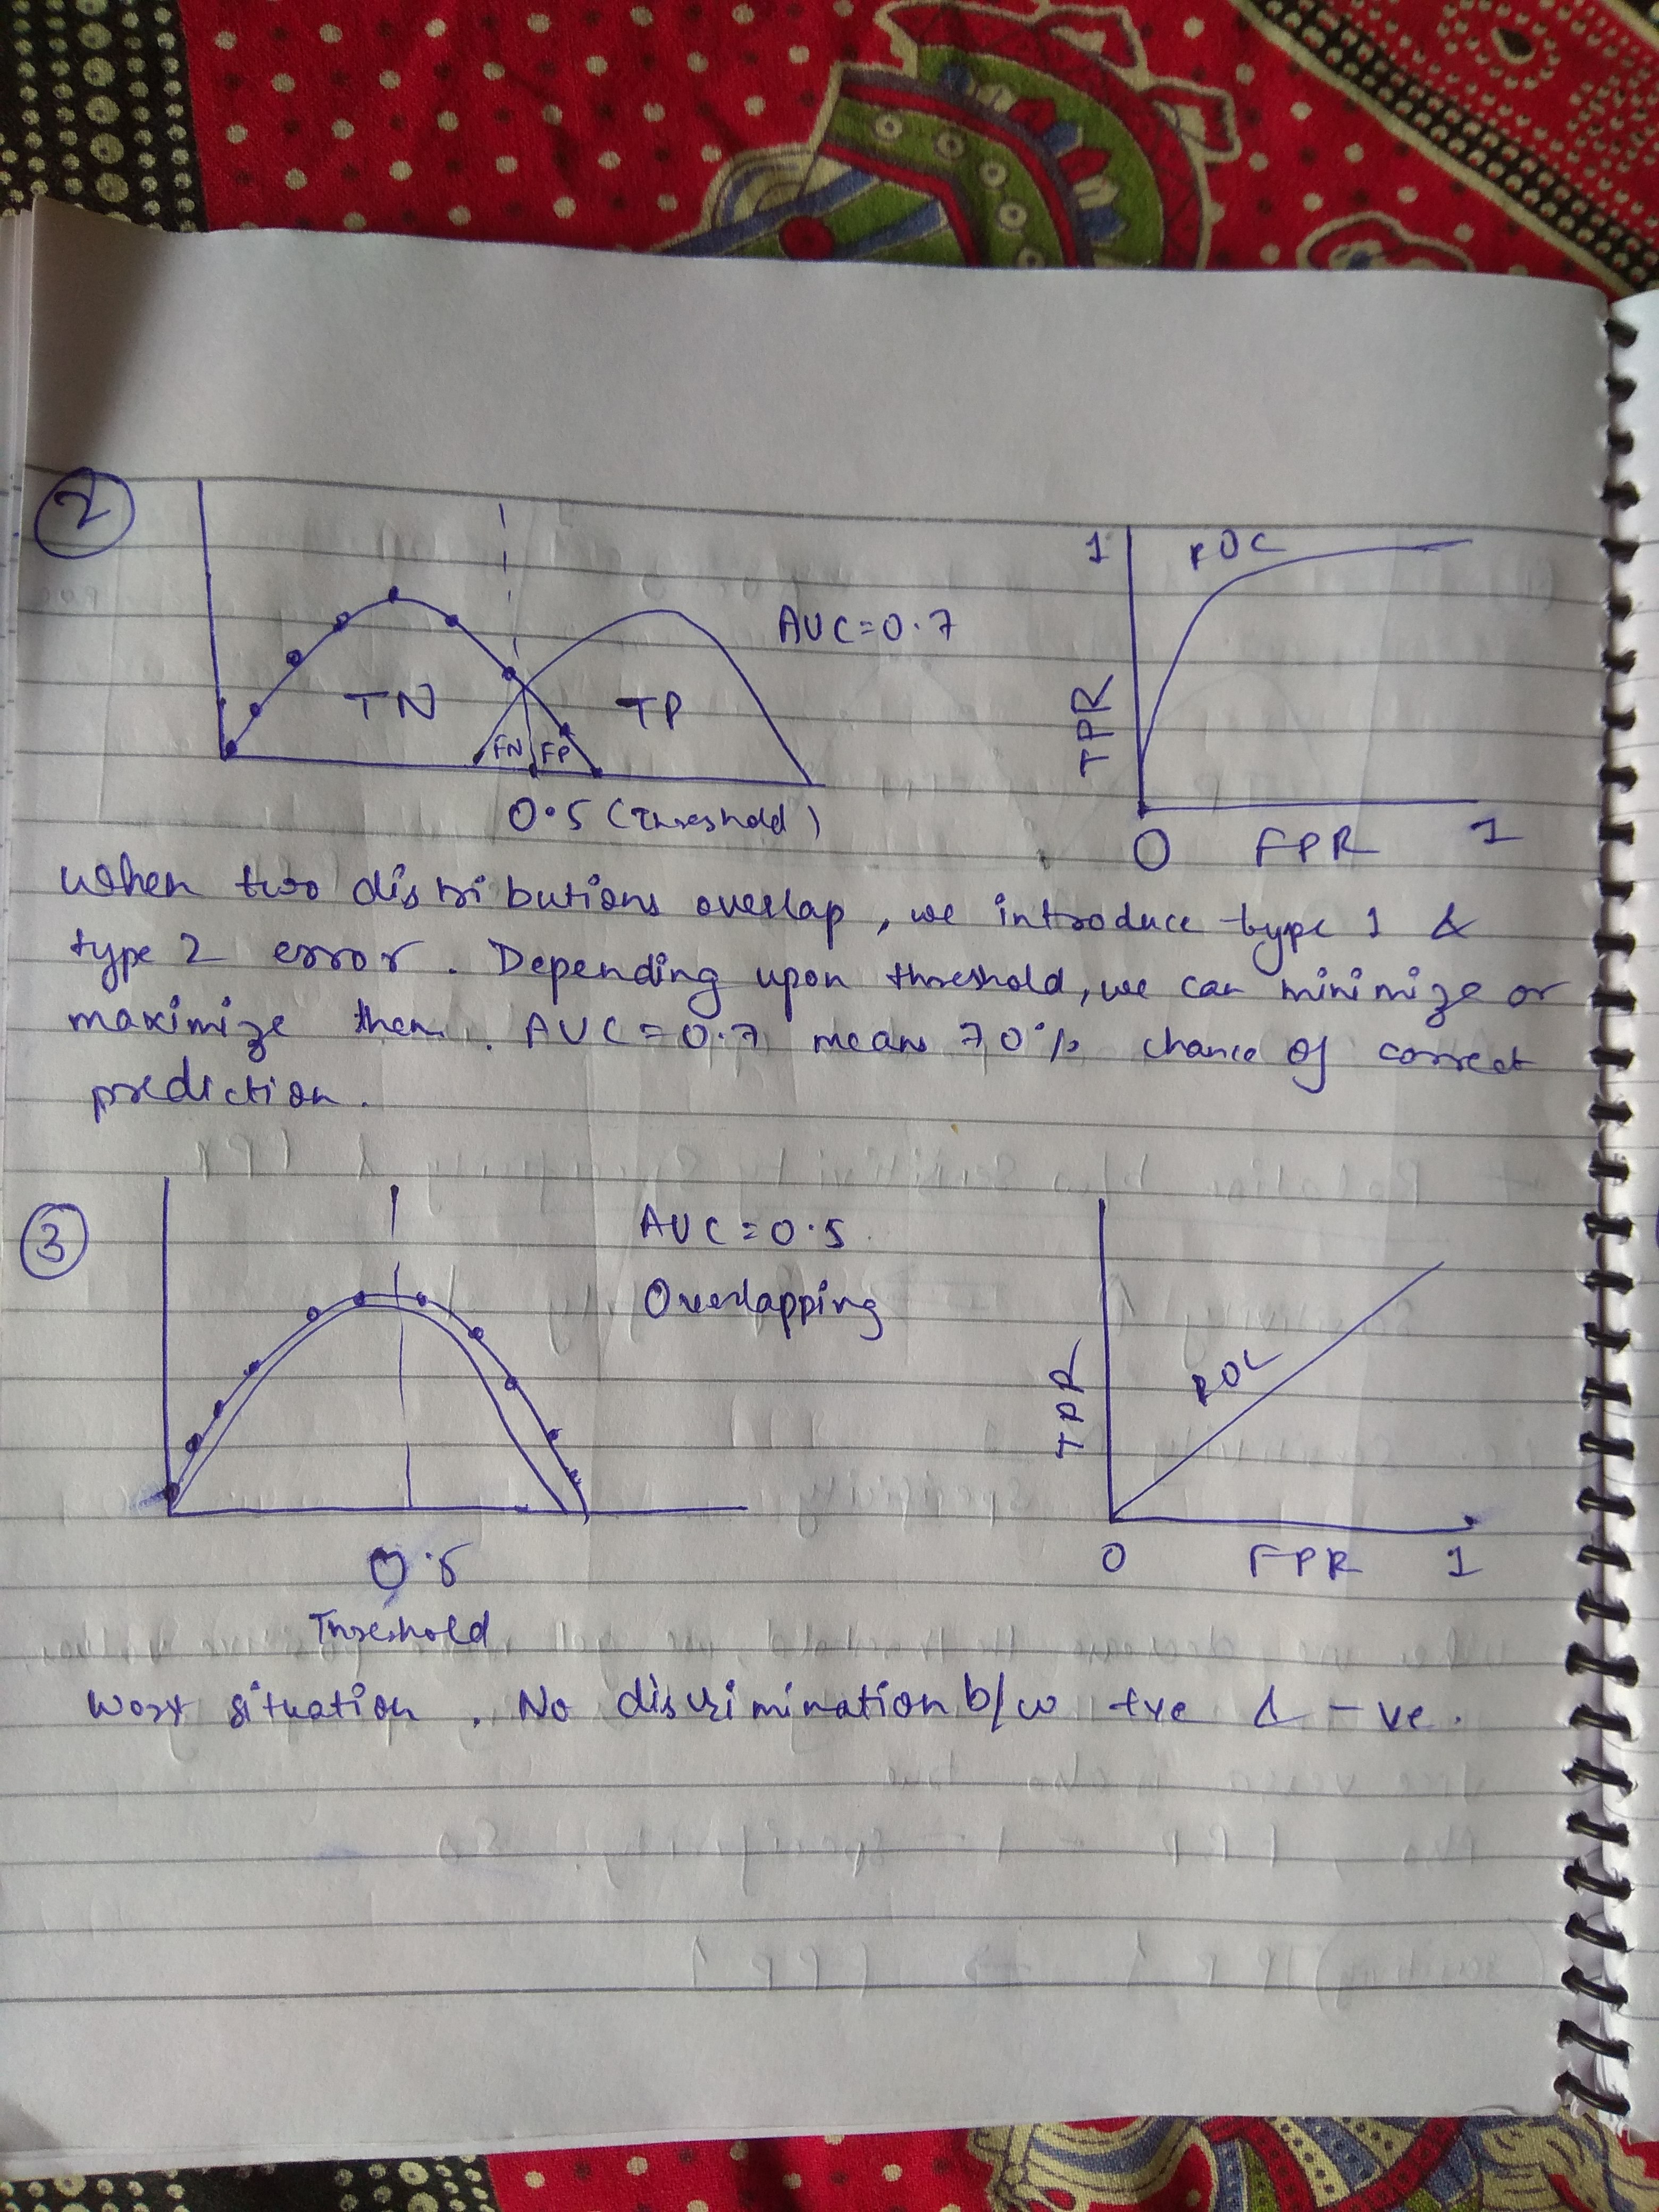 2
1 ROC
AUC=0.7
TN TP
FN FP
TPR
0.5 (Threshold)
0 FPR 1
When two distributions overlap, we introduce type 1 &
type 2 error. Depending upon threshold, we can minimize or
maximize them. AUC=0.7 means 70% chance of correct
prediction.
3
AUC=0.5
Overlapping
ROC
TPR
0.5
Threshold
0 FPR 1
Worst situation. No discrimination b/w +ve & -ve.